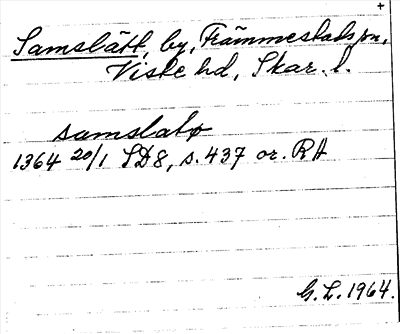 +
Samslätt, by, Främmestads sn,
Viste hd, Skar. l.
samslatø
1364 20/1 SD8, s. 437 or. RA
G. L. 1964.